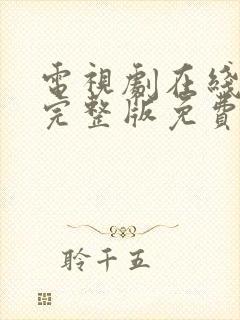 電視劇在綫
完整版免費
聆千五